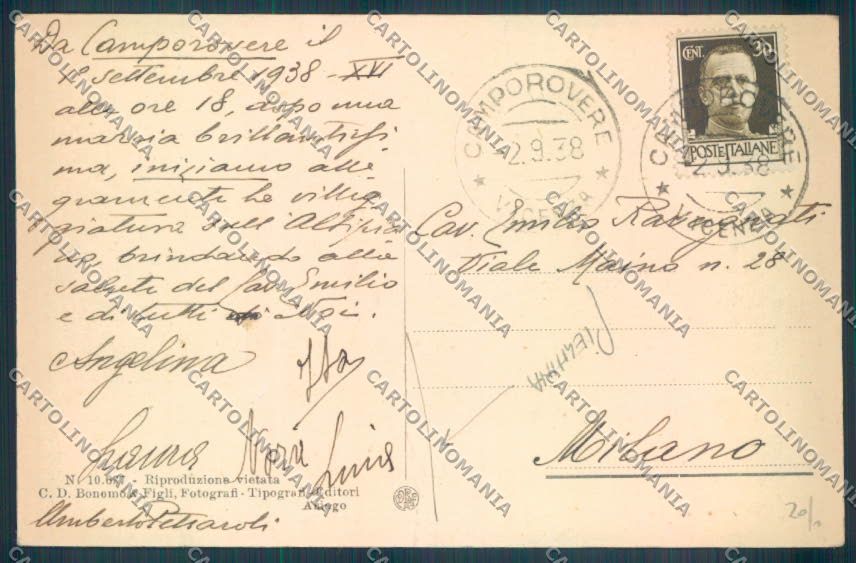 Da Camporovere il
1 settembre 1938 - XVI
alle ore 18, dopo una
marcia brillantissi
ma, iniziamo alle
gramente la villeg
giatura sull'Altipia
no, brindando alla
salute del Cav. Emilio
e di tutti Noi.
Angelina
Laura
Umberto Petraroli
N. 10.6
Riproduzione vietata
C. D. Bonomo & Figli, Fotografi - Tipografi-Editori
Asiago
CAMPOROVERE
2.9.38
VICENZA
CENT. 30
POSTE ITALIANE
CAMPOROVERE
2.9.38
VICENZA
Cav. Emilio
Viale Maino n. 28
Milano
PIEGHINA
20/
CARTOLINOMANIA